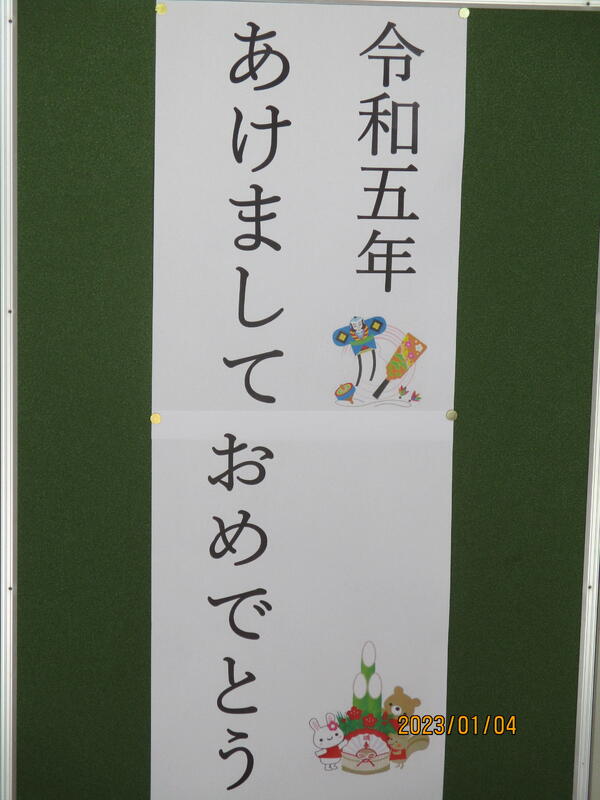 令和五年
あけまして おめでとう
2023/01/04